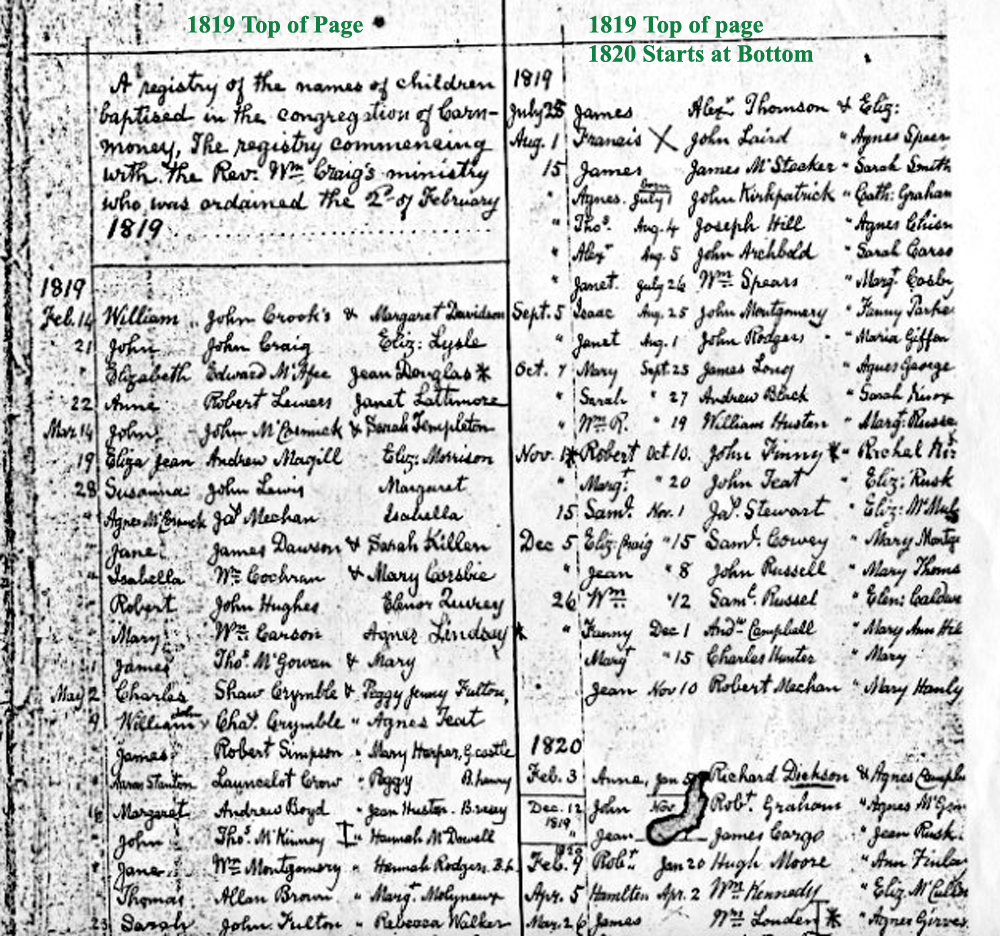 1819 Top of Page
1819 Top of page
1820 Starts at Bottom
A registry of the names of children
baptised in the congregation of Carn-
money, The registry commencing
with the Revd. Wm Craig's ministry
who was ordained the 2d of February
1819
1819
Feb. 14 William " John Crook's & Margaret Davidson
21 John John Craig Eliz: Lysle
" Elizabeth Edward McAfee Jean Douglas *
22 Anne Robert Lewers Janet Lattimore
Mar. 14 John John McCormick & Sarah Templeton
19 Eliza Jean Andrew Magill Eliz: Morrison
28 Susanna John Lewis Margaret
" Agnes McCormick Jas. Mechan Isabella
Jane James Dawson & Sarah Killen
" Isabella Wm Cochran & Mary Corsbie
Robert John Hughes Elenor
Mary Wm Carson Agnes Lindsay *
James Thos. McGowan & Mary
May 2 Charles Shaw Crymble & Peggy Jenny Fulton,
9 William John Chas. Crymble " Agnes Teat
James Robert Simpson " Mary Harper, G.castle
Aaron Stanton Launcelot Crow " Peggy B.henry
16 Margaret Andrew Boyd " Jean Huston
John Thos. McKinney " Hannah McDowell
Jane Wm Montgomery " Hannah Rodgers
Thomas Allan Brown " Margt. Molyneux
23 Sarah John Fulton " Rebecca Walker
1819
July 25 James Alexr Thomson & Eliz:
Aug. 1 Francis X John Laird " Agnes Speer
15 James James McStocker " Sarah Smith
" Agnes. Born July 1 John Kirkpatrick " Cath: Graham
" Thos. Aug. 4 Joseph Hill " Agnes
" Alexr Aug. 5 John Archbold " Sarah Carso
" Janet July 26 Wm Spears " Margt. Cosby
Sept. 5 Isaac Aug. 25 John Montgomery " Fanny Parke
" Janet Aug. 1 John Rodgers " Maria Giffen
Oct. 7 Mary Sept. 25 James Long " Agnes George
" Sarah " 27 Andrew Black " Sarah Knox
" Wm R. " 19 William Huston " Margt. Russe
Nov. 1 * Robert Oct 10. John Finny * " Rachel
" Margt. " 20 John Teat " Eliz: Rusk
15 Saml. Nov. 1 Jas. Stewart " Eliz: McMul
Dec 5 Eliz: Craig " 15 Saml. Cowey " Mary Montge
" Jean " 8 John Russell " Mary Thoms
26 Wm " 12 Saml. Russel " Elen: Caldwe
" Fanny Dec 1 Andw Campbell " Mary Ann Hil
Margt " 15 Charles Hunter " Mary
Jean Nov 10 Robert Mechan " Mary Hanly
1820
Feb. 3 Anne, Jan Richard Dickson & Agnes Camplu
Dec. 12 John Nov Robt. Graham " Agnes McGow
1819 " Jean James Cargo " Jean Rusk.
1820
Feb. 9 Robt. Jan 20 Hugh Moore " Ann Finlay
Apr. 5 Hamilton Apr. 2 Wm Kennedy " Eliz McCullo
May. 26 James Wm Louden * " Agnes